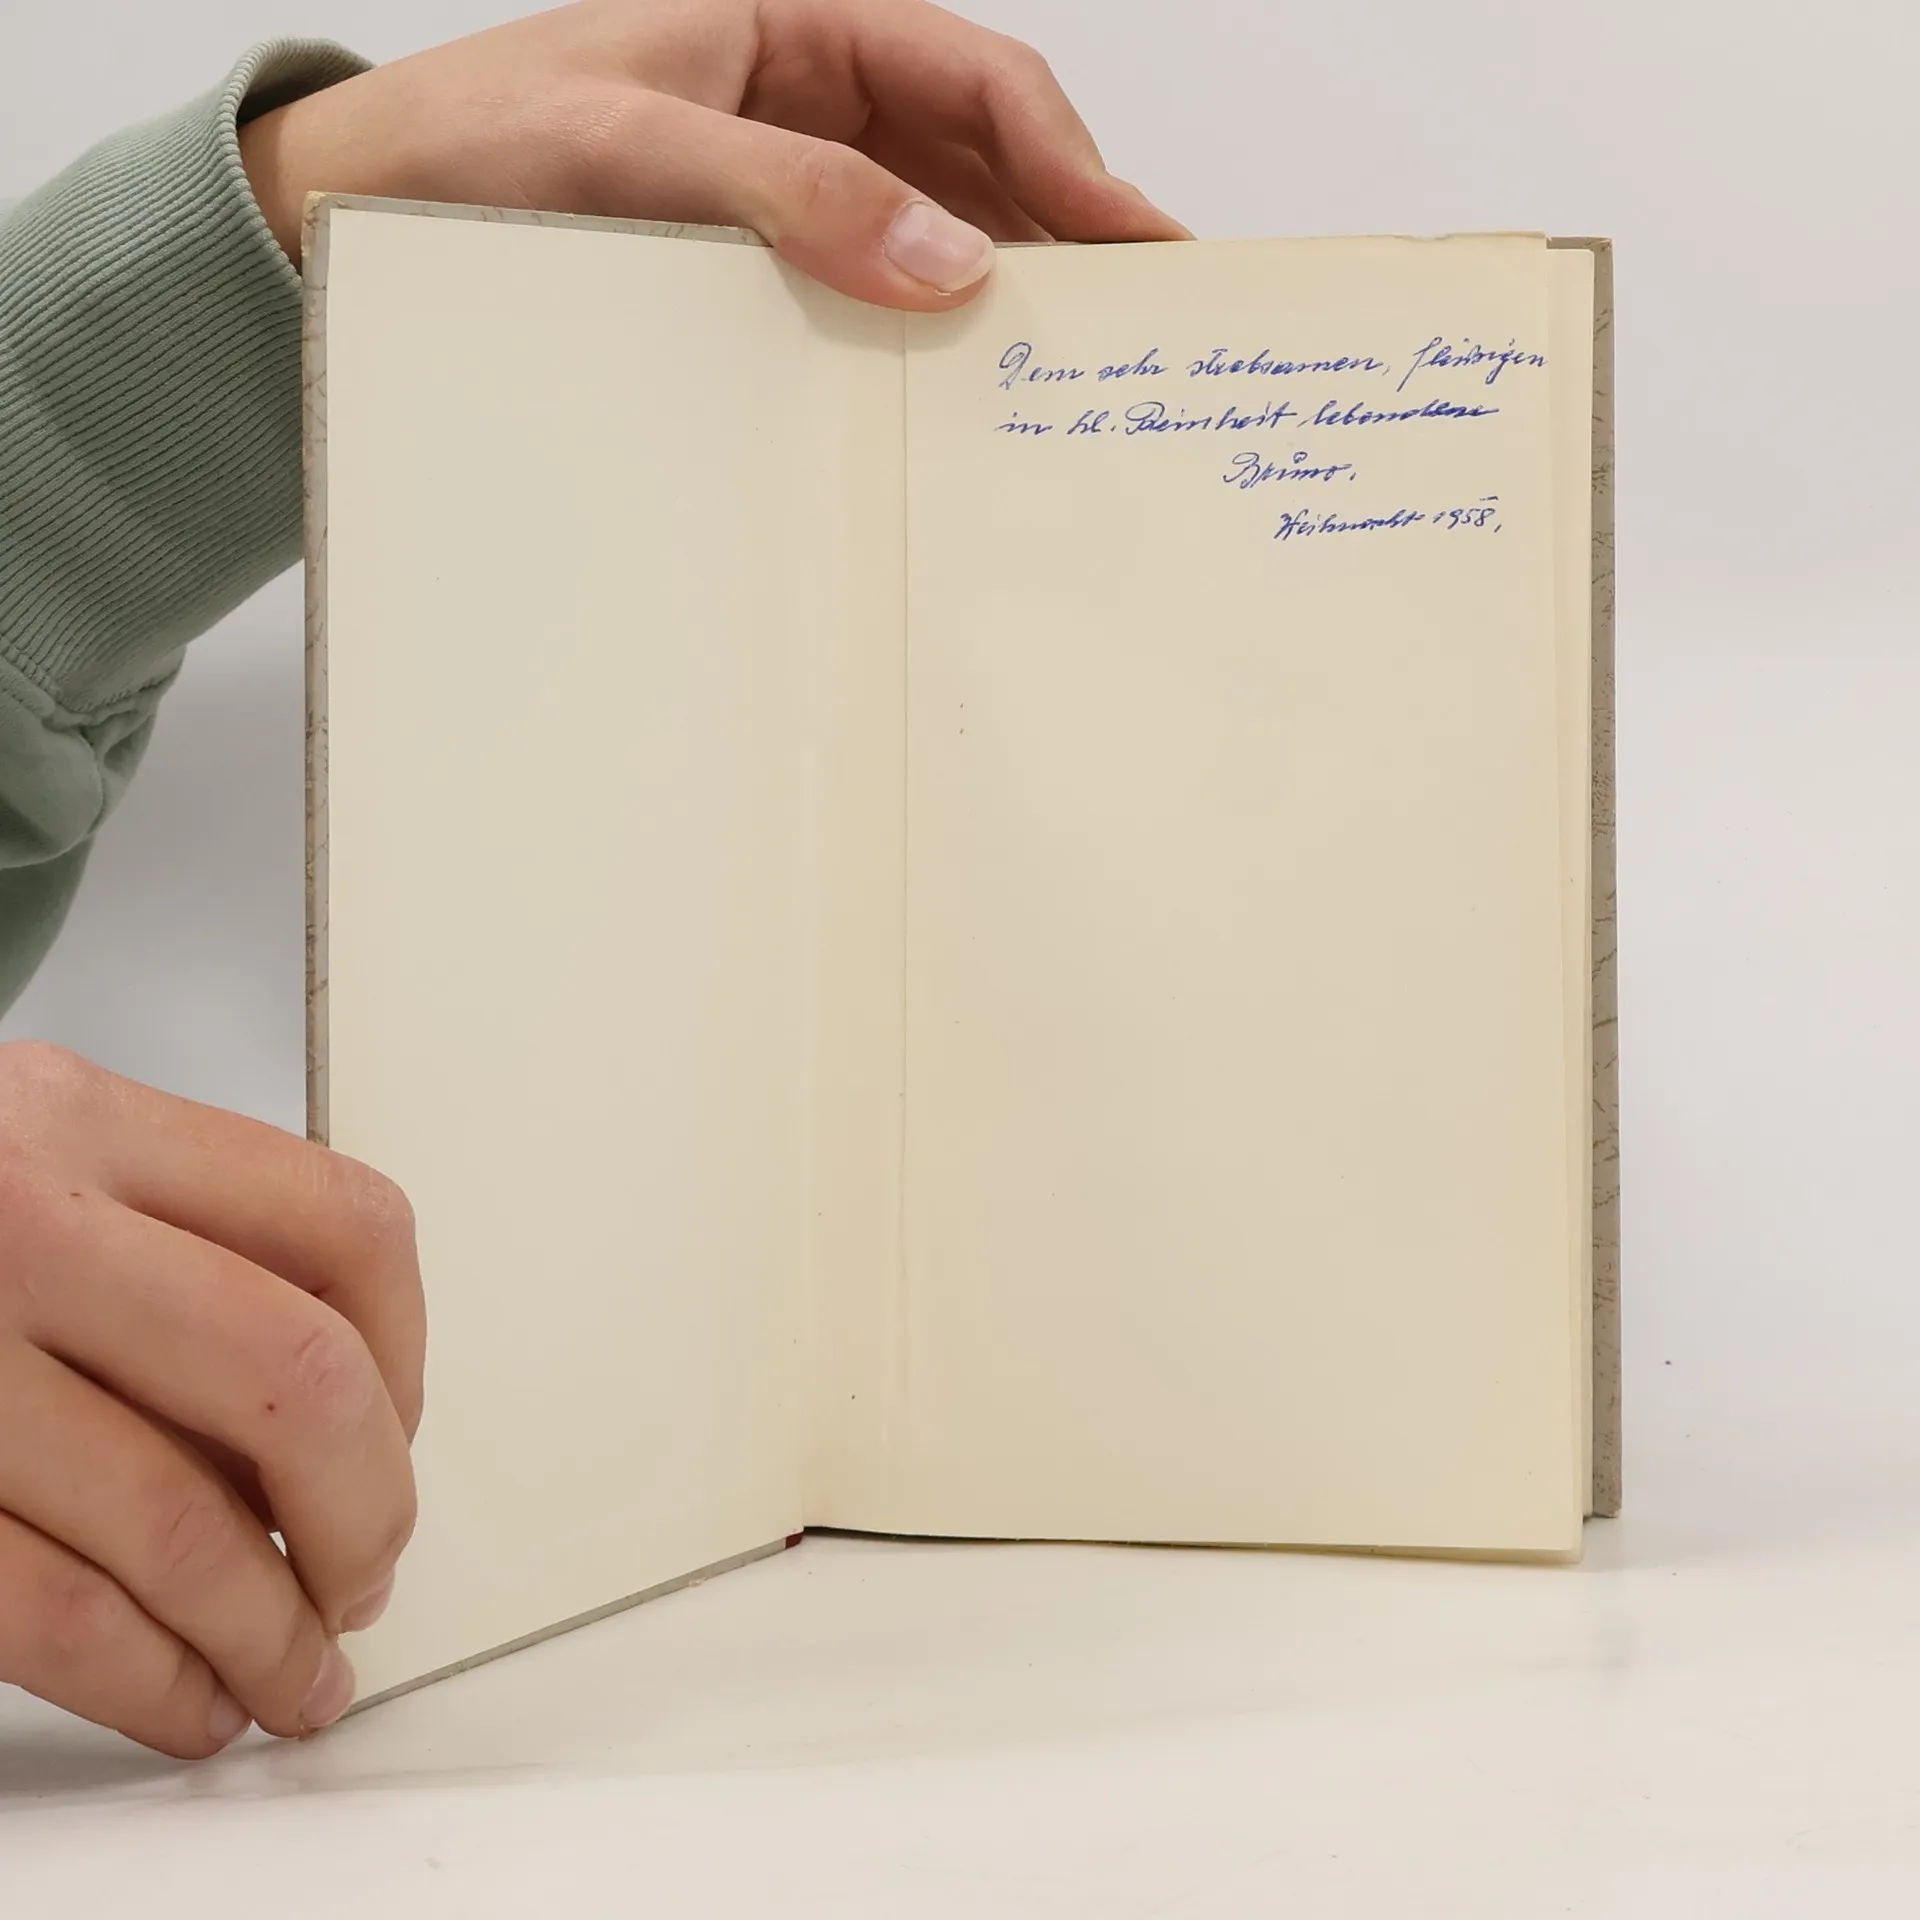 Dem sehr strebsamen, fleißigen
in hl. Reinheit lebenden
Bruno.
Weihnacht 1958,